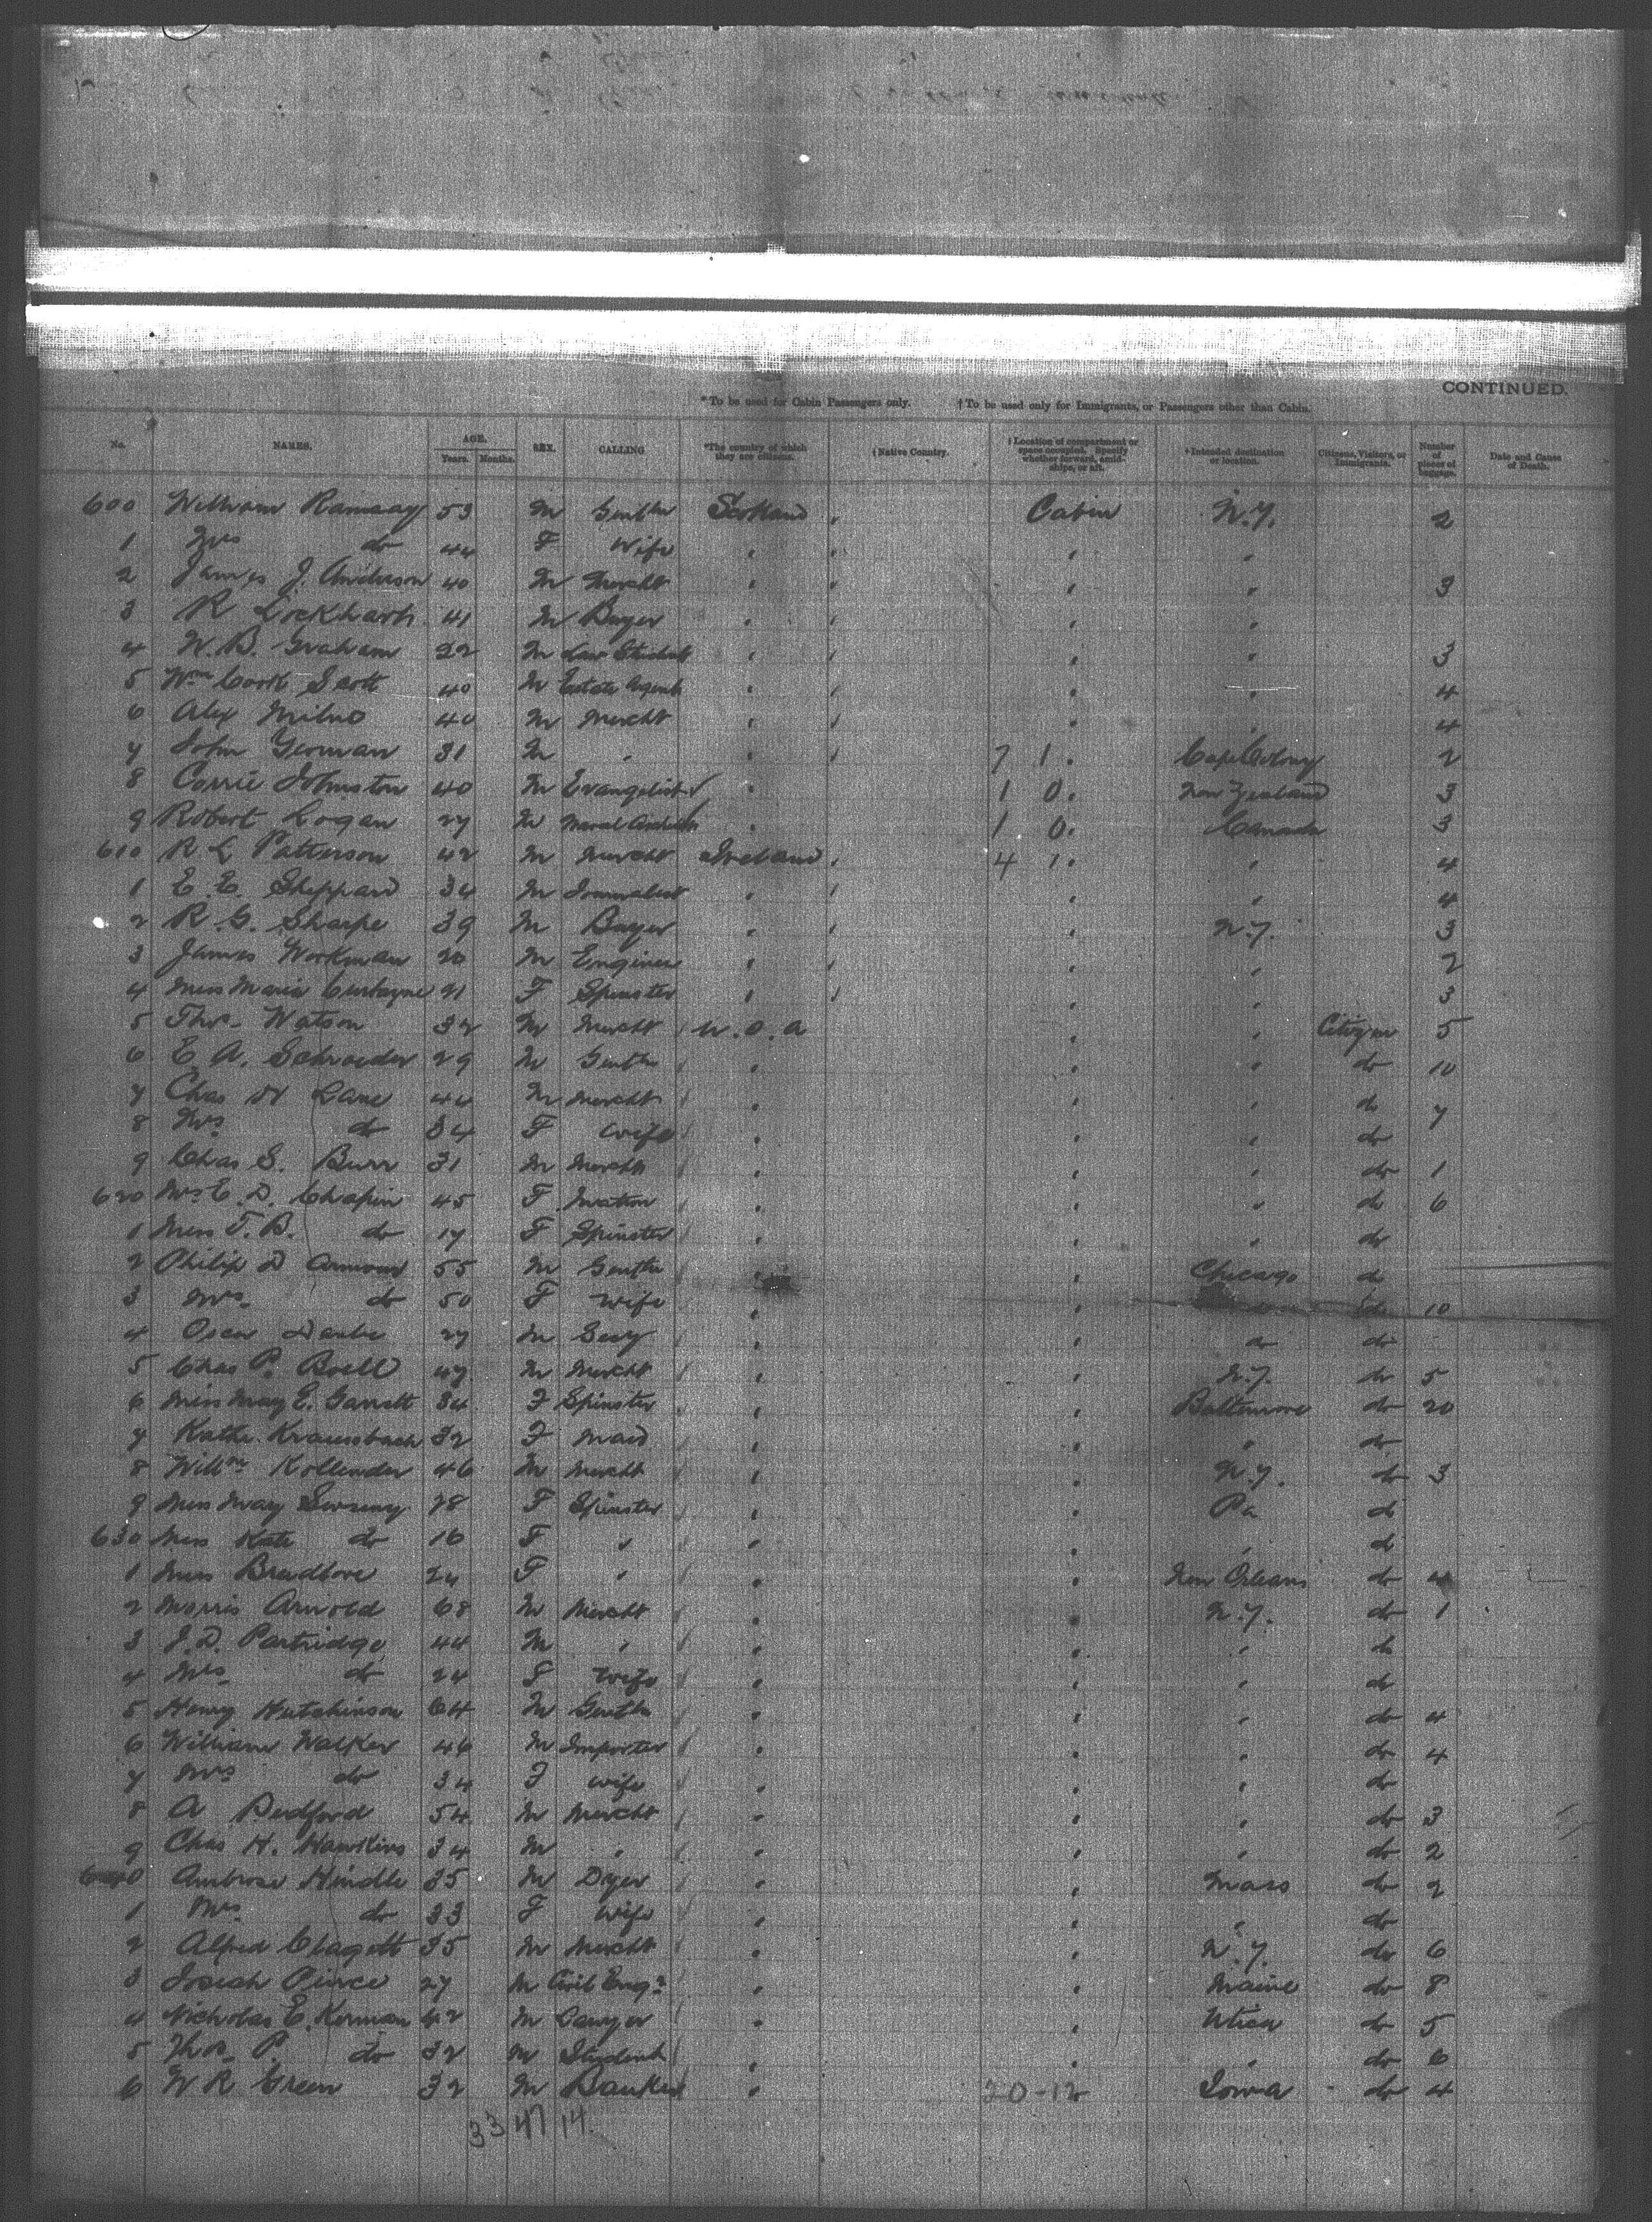 CONTINUED.
*To be used for Cabin Passengers only. †To be used only for Immigrants, or Passengers other than Cabin.
No. NAMES. AGE. Years. Months. SEX. CALLING *The country of which they are citizens. †Native Country. †Location of compartment or space occupied. Specify whether forward, amidships, or aft. †Intended destination or location. Citizens, Visitors, or Immigrants. Number of pieces of luggage. Date and Cause of Death.
600 William Ramsay 53 M Gentln Scotland Cabin N.Y. 2
1 Mrs do 44 F Wife
2 James J. Anderson 40 M Mercht 3
3 R Lockhart 41 M Buyer
4 W. B. Graham 22 M Law Student 3
5 Wm Cook Scott 40 M Estate Agent 4
6 Alex Milne 40 M Mercht 4
7 John Yeoman 31 M " 7 1 Cape Colony 2
8 Corrie Johnston 40 M Evangelist 1 0 New Zealand 3
9 Robert Logan 27 M Naval Archt 1 0 Canada 3
610 R L Patterson 42 M Mercht Ireland 4 1 " 4
1 E. E. Sheppard 34 M Journalist " 4
2 R. G. Sharpe 39 M Buyer N.Y. 3
3 James Workman 20 M Engineer " 2
4 Miss Maria 21 F Spinster " 3
5 Thos. Watson 32 M Mercht U.S.A " Citizen 5
6 E A. Schroeder 29 M Gentln " do 10
7 Chas H Lane 44 M Mercht " do 7
8 Mrs do 34 F Wife " do
9 Chas S. Burr 31 M Mercht " do 1
620 Mrs E. D. Chapin 45 F Matron " do 6
1 Miss F. B. do 17 F Spinster " do
2 Philip D Armour 55 M Gentln Chicago do
3 Mrs. do 50 F Wife " do 10
4 Oscar 27 M Secy do do
5 Chas P. Buell 47 M Mercht N.Y. do 5
6 Miss Mary E. Garrett 34 F Spinster Baltimore do 20
7 Kathe. Kraussbach 32 F Maid " do
8 Willm Kollender 46 M Mercht N.Y. do 3
9 Miss May Sweeny 28 F Spinster Pa do
630 Miss Kate do 16 F " " do
1 Miss Breedlove 24 F " New Orleans do 4
2 Morris Arnold 68 M Mercht N.Y. do 1
3 J. D. Partridge 44 M " " do
4 Mrs do 24 F Wife " do
5 Henry Hutchinson 64 M Gentln " do 4
6 William Walker 46 M Importer " do 4
7 Mrs do 34 F Wife " do
8 A Bedford 54 M Mercht " do 3
9 Chas H. Hawkins 34 M " " do 2
640 Ambrose Hindle 35 M Dyer Mass do 2
1 Mrs do 33 F Wife " do
2 Alfred Clagett 35 M Mercht N.Y. do 6
3 Josiah Pierce 27 M Civil Engr Maine do 8
4 Nicholas E. Kernan 42 M Lawyer Utica do 5
5 Thos. P. do 32 M Student " do 6
6 W R Green 32 M Banker 20-12 Iowa do 4
33 47 14